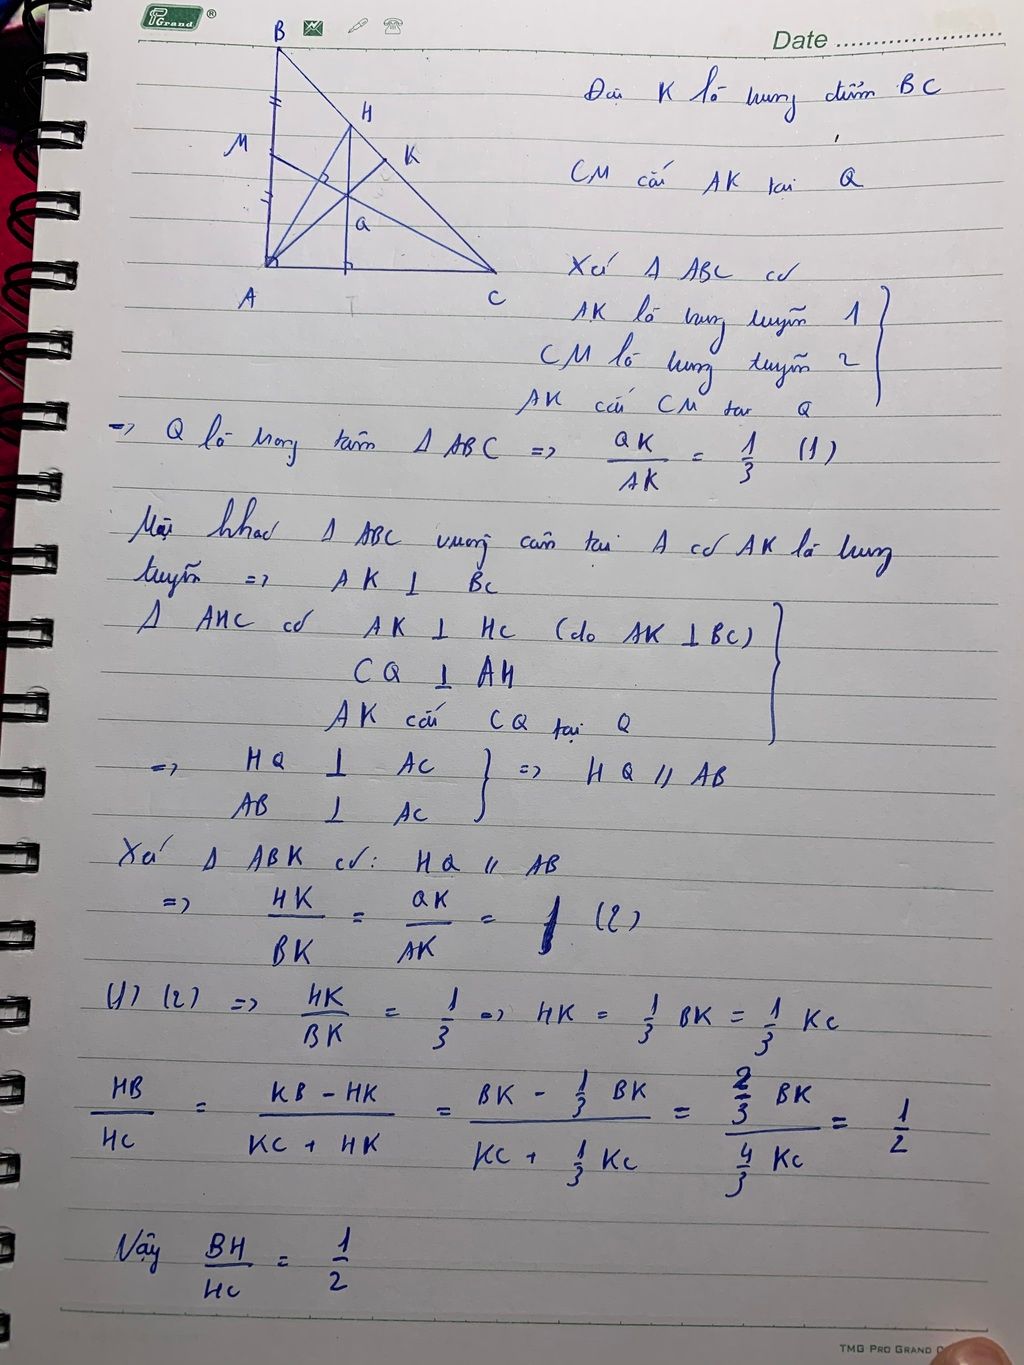 PGrand ®
Date
B
H
M
K
Q
A
C
Đặt K là trung điểm BC
CM cắt AK tại Q
Xét Δ ABC có
AK là trung tuyến 1
CM là trung tuyến 2
AK cắt CM tại Q
=> Q là trọng tâm Δ ABC => QK/AK = 1/3 (1)
Mặt khác Δ ABC vuông cân tại A có AK là trung
tuyến => AK ⊥ BC
Δ AHC có AK ⊥ HC (do AK ⊥ BC)
CQ ⊥ AH
AK cắt CQ tại Q
=> HQ ⊥ AC } => HQ // AB
AB ⊥ AC
Xét Δ ABK có: HQ // AB
=> HK/BK = QK/AK = (2)
(1) (2) => HK/BK = 1/3 => HK = 1/3 BK = 1/3 KC
HB/HC = (KB - HK)/(KC + HK) = (BK - 1/3 BK)/(KC + 1/3 KC) = (2/3 BK)/(4/3 KC) = 1/2
Vậy BH/HC = 1/2
TMG PRO GRAND